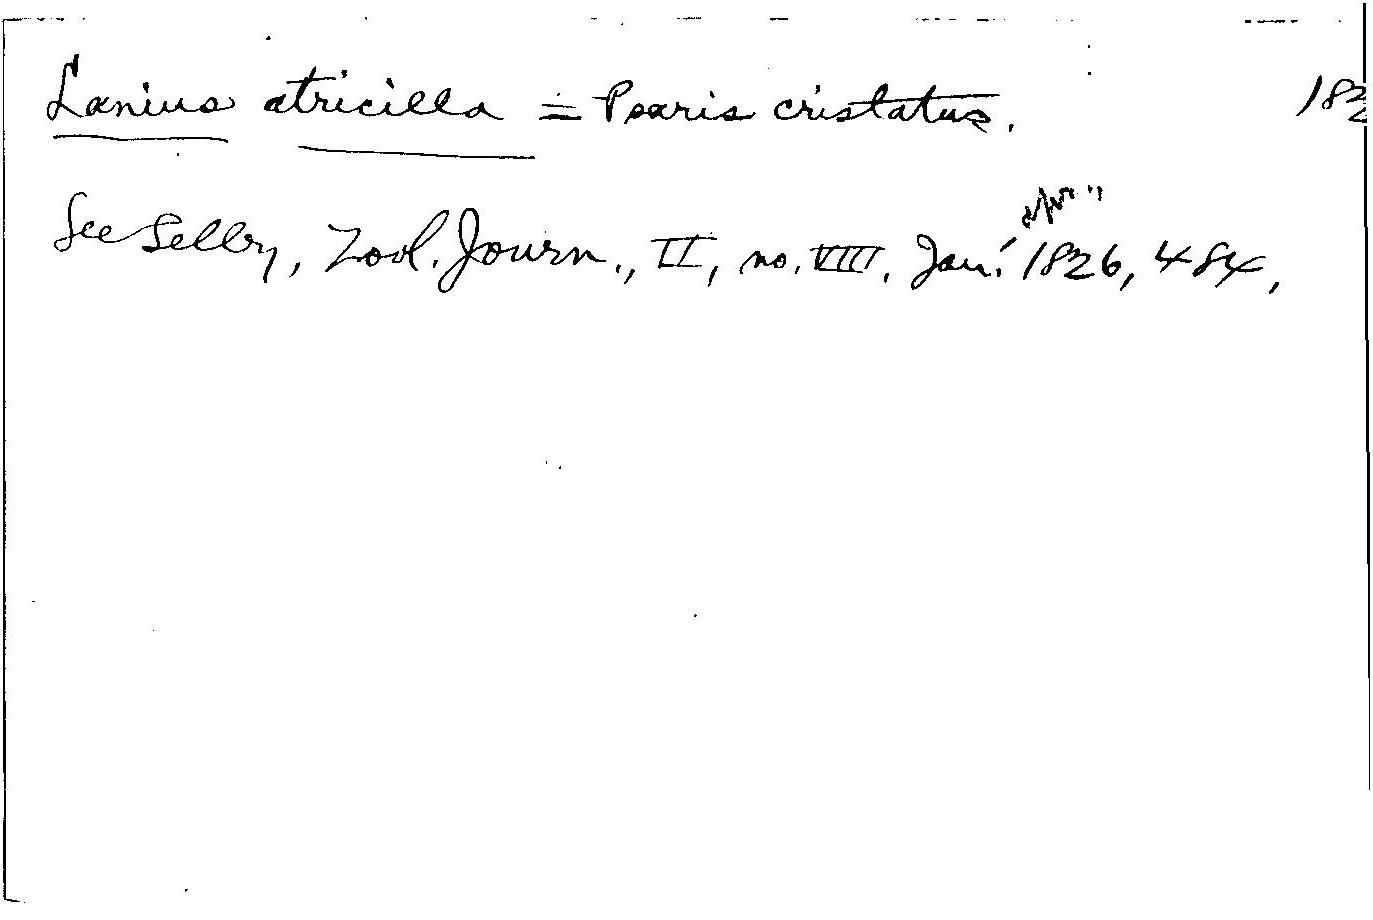 Lanius atricilla = Psaris cristatus. 182
See Selby, Zool. Journ., II, no. VIII, Jan. 1826, 484,